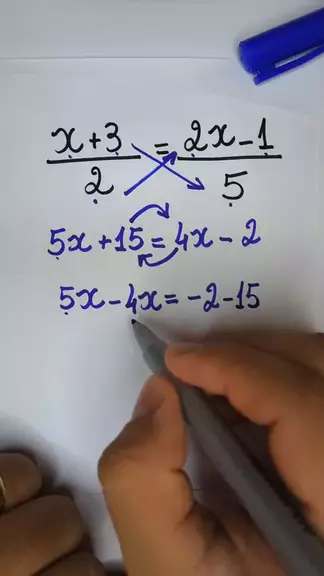 x+3/2 = 2x-1/5
5x+15=4x-2
5x-4x=-2-15